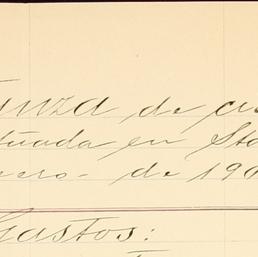 de
tuada en Sto
ero- de 190
Gastos: